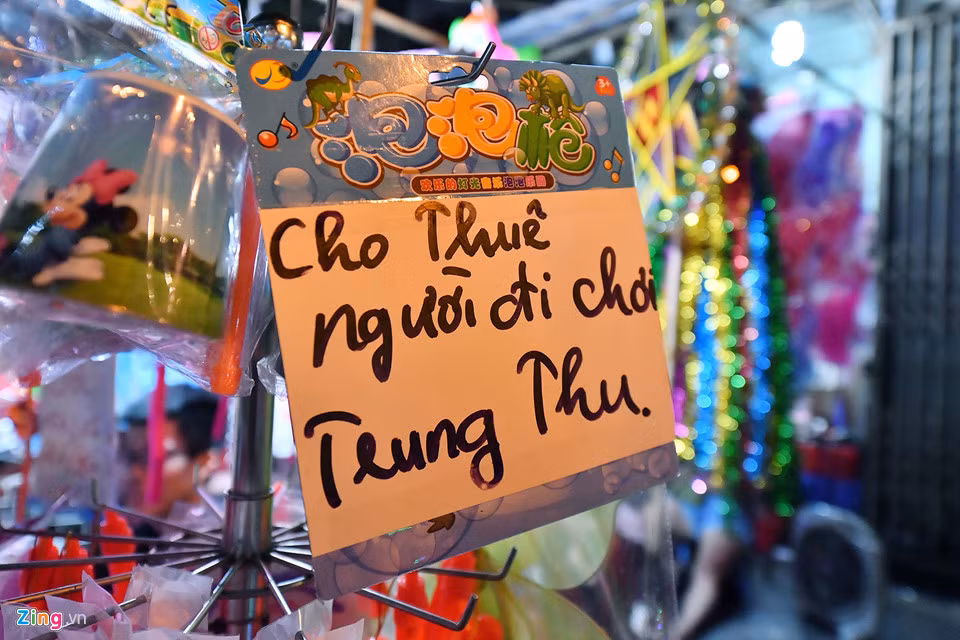 3+
泡泡
欢乐的灯光音乐泡泡乐园
Cho Thuê
người đi chơi
Trung Thu.
Zing.vn